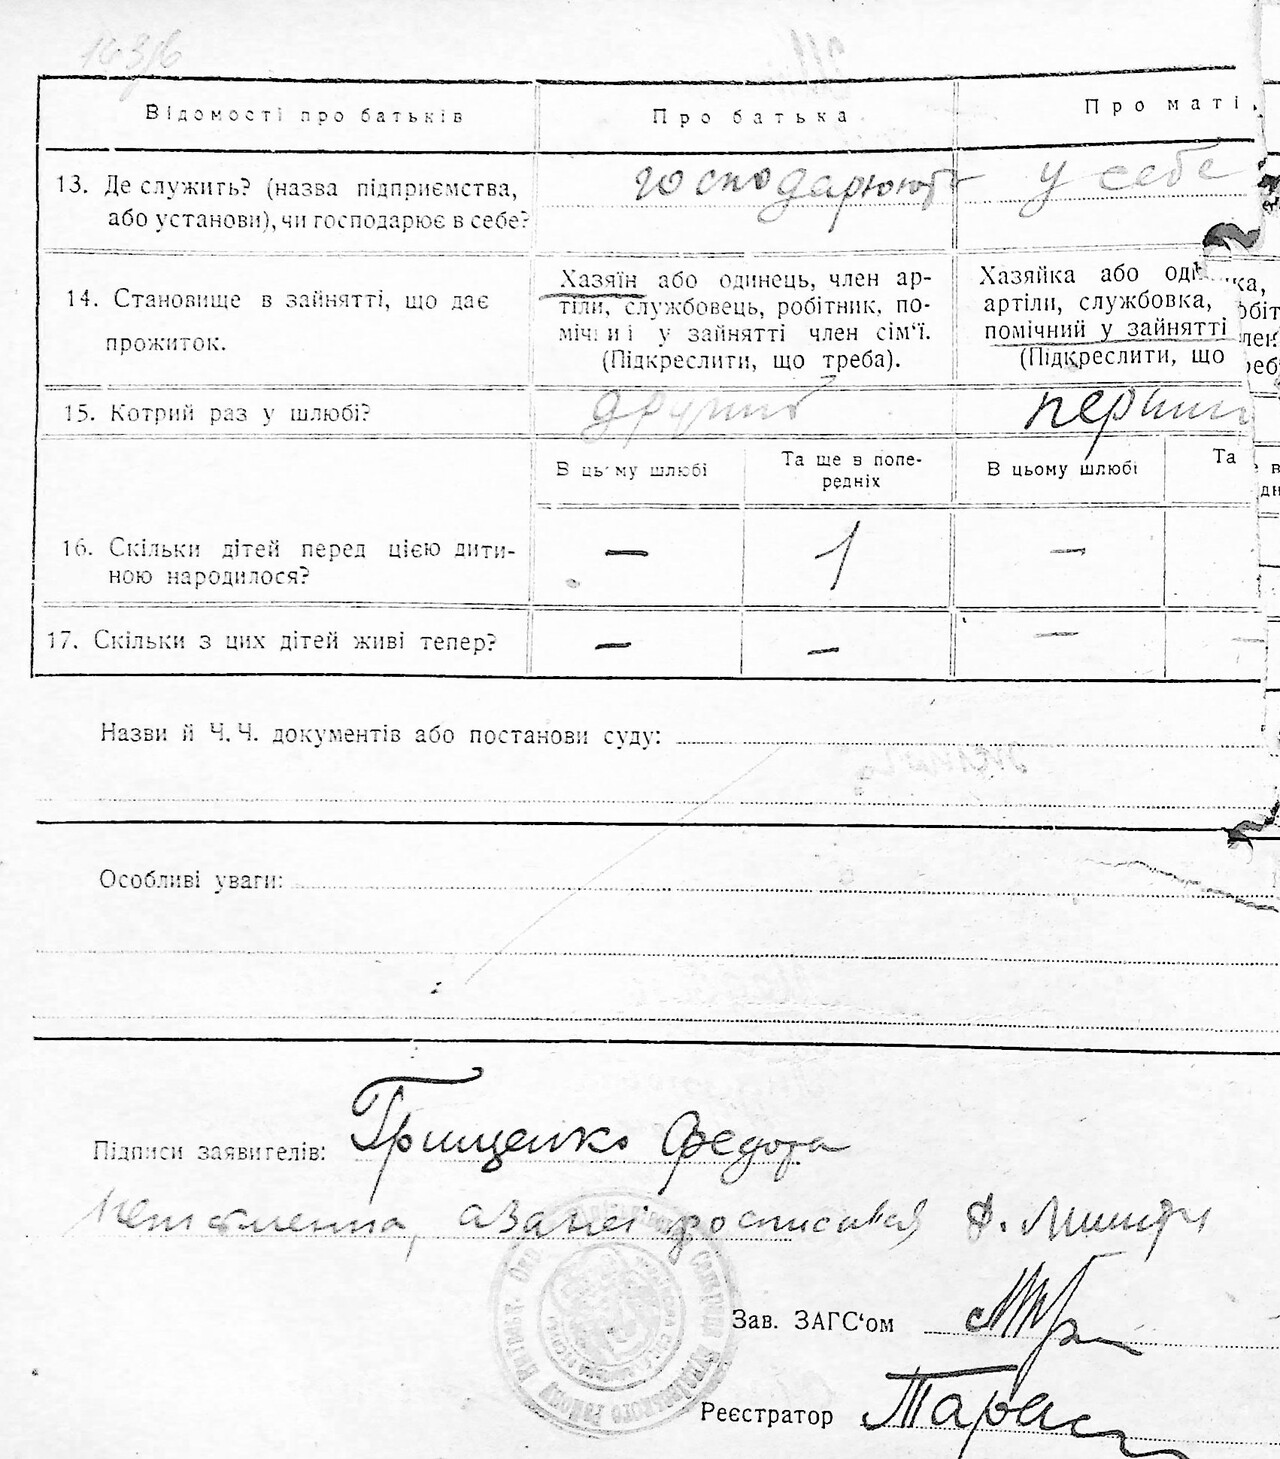 Відомості про батьків
Про батька
Про маті
13. Де служить? (назва підприємства,
або установи), чи господарює в себе?
господарюють у себе
14. Становище в зайнятті, що дає
прожиток.
Хазяїн або одинець, член ар-
тіли, службовець, робітник, по-
мічний у зайнятті член сім'ї.
(Підкреслити, що треба).
Хазяйка або оди
артіли, службовка,
помічний у зайнятті
(Підкреслити, що
15. Котрий раз у шлюбі?
другий
перший
В цьому шлюбі
Та ще в попе-
редніх
В цьому шлюбі
Та
16. Скільки дітей перед цією дити-
ною народилося?
— 1 —
17. Скільки з цих дітей живі тепер?
— — — —
Назви й Ч. Ч. документів або постанови суду:
Особливі уваги:
Підписи заявителів: Грищенко Федора
неписьменна, а за неї росписався
Зав. ЗАГС'ом
Реєстратор Тарас